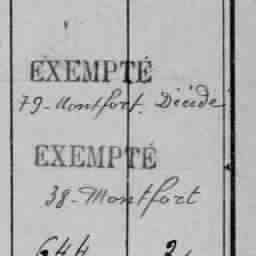 EXEMPTÉ
79 - Montfort. Décidé
EXEMPTÉ
38 - Montfort
644